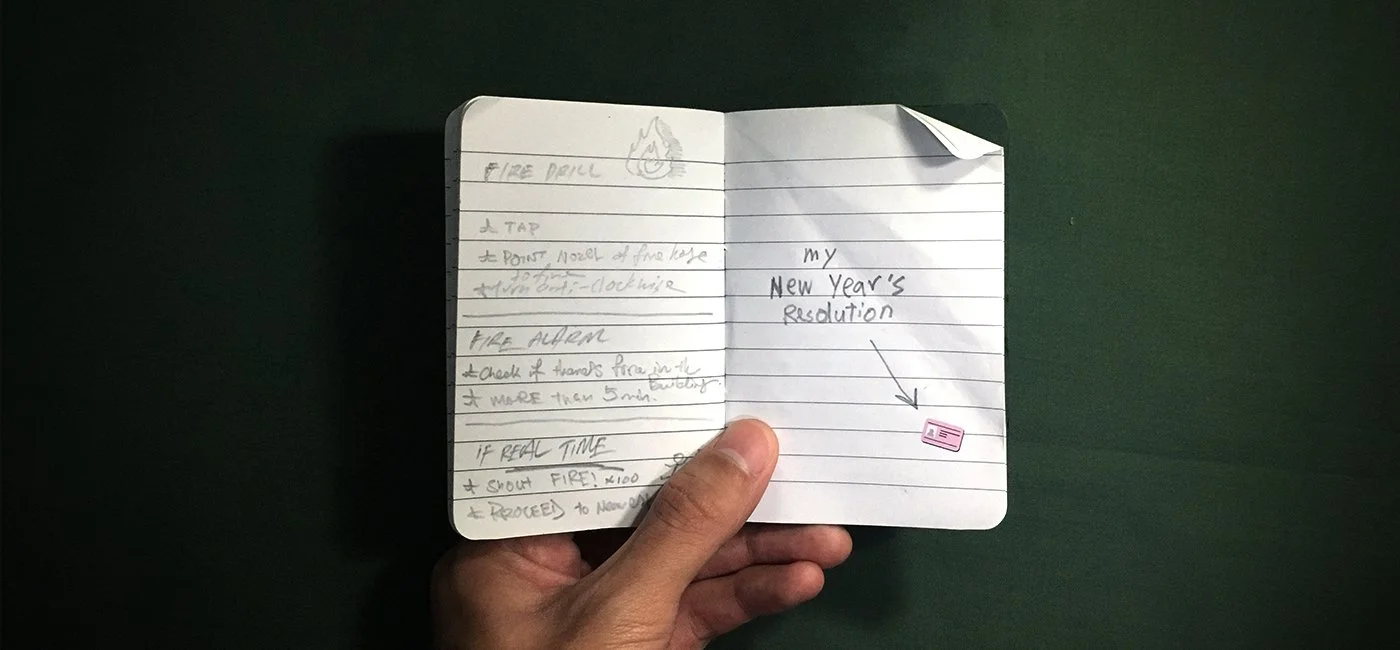 FIRE DRILL
* TAP
* POINT Nozel of fire hose
to fire
* turn anti-clockwise
FIRE ALARM
* Check if there's fire in the
Building.
* MORE than 5 min.
IF REAL TIME
* Shout FIRE! x100
* PROCEED to
my
New Year's
Resolution